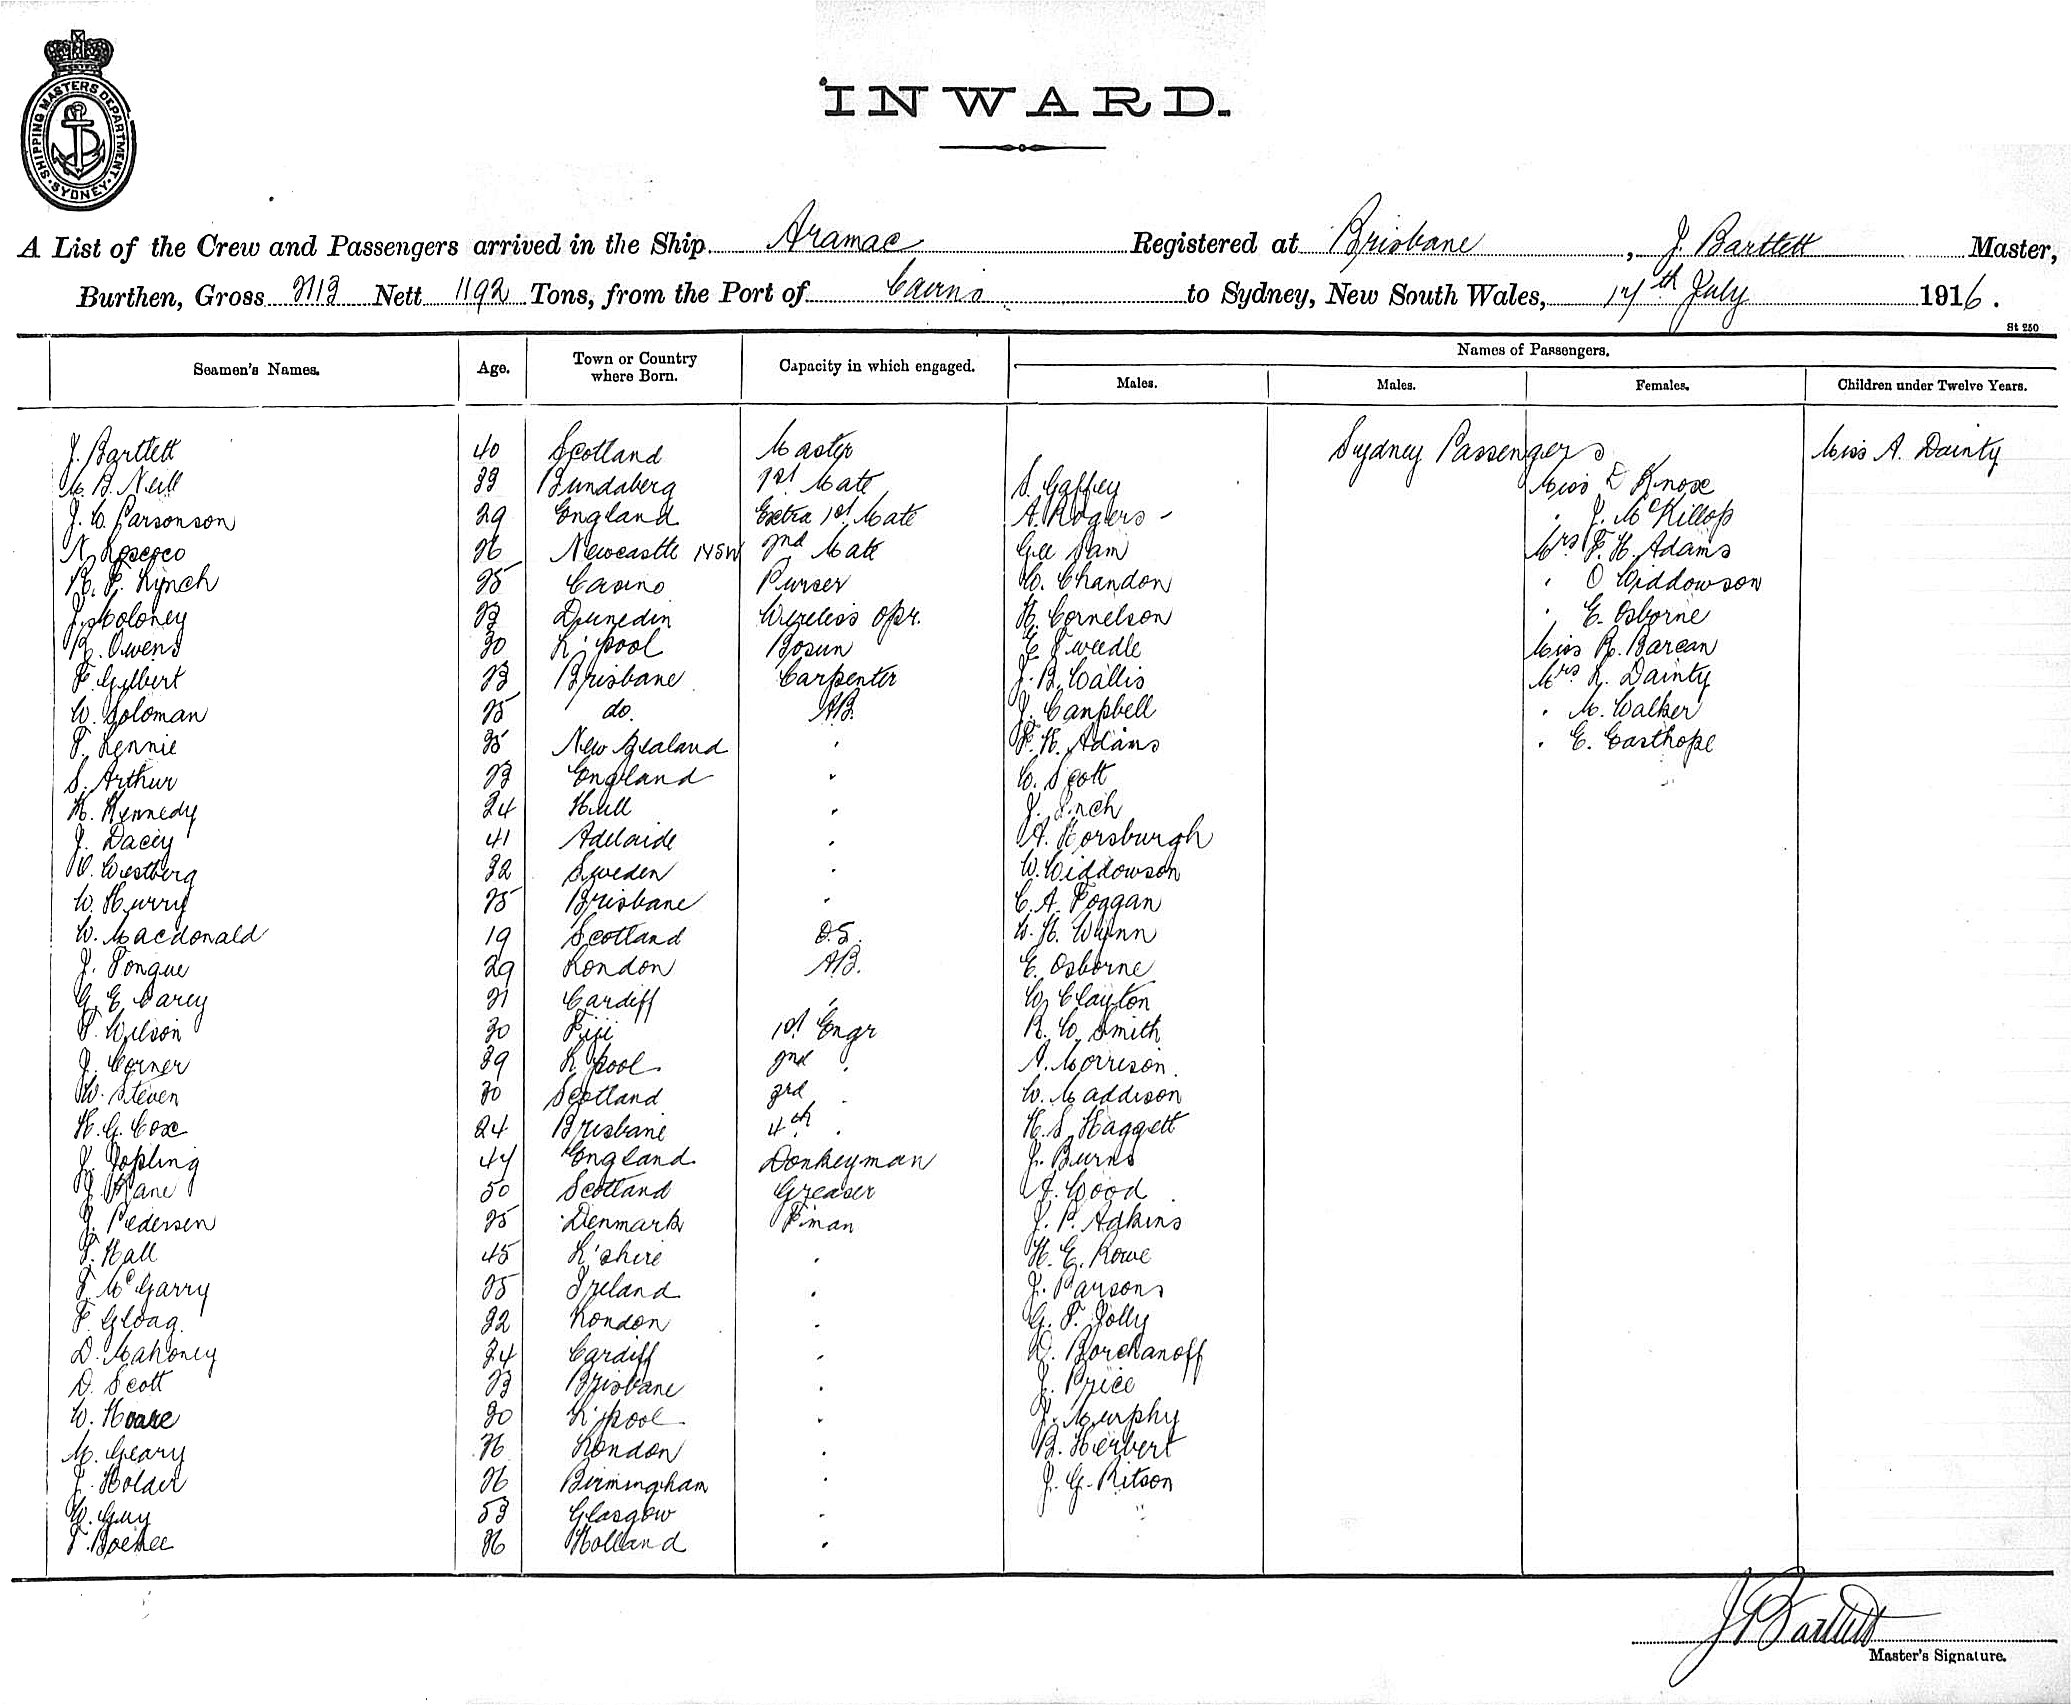 SHIPPING MASTERS DEPARTMENT · SYDNEY ·
INWARD.
A List of the Crew and Passengers arrived in the Ship Aramac Registered at Brisbane, J. Bartlett Master,
Burthen, Gross 2113 Nett 1192 Tons, from the Port of Cairns to Sydney, New South Wales, 17th July 1916.
St 250
Seamen's Names. Age. Town or Country where Born. Capacity in which engaged. Names of Passengers.
Males. Males. Females. Children under Twelve Years.
J. Bartlett 40 Scotland Master Sydney Passengers Miss A. Dainty
M. B. Neill 33 Bundaberg 1st Mate S. Gaffey Miss E Knox
J. C. Parsonson 29 England Extra 1st Mate A. Rogers - " J. McKillop
N. Roscoe 26 Newcastle NSW 2nd Mate Gee Sam Mrs F. H. Adams
R. P. Lynch 25 Casino Purser C. Chandon " O Widdowson
J. Moloney 23 Dunedin Wireless Opr. H. Cornelson " E. Osborne
R. Owens 30 L'pool Bosun E Tweedle Miss R. Barcan
F. Gilbert 23 Brisbane Carpenter J. B. Wallis Mrs L. Dainty
W. Soloman 25 do. A.B. J. Campbell " M. Walker
F. Rennie 35 New Zealand " F. H. Adams " E. Easthope
S. Arthur 23 England " W. Scott
H. Kennedy 24 Hull " J.
J. Dacey 41 Adelaide " A. Horsburgh
O. Westberg 32 Sweden " W. Widdowson
W. Hurry 25 Brisbane " C. A. Foggan
W. Macdonald 19 Scotland O.S. W. H. Wynn
J. Tongue 29 London A.B. E. Osborne
G. E. Carey 21 Cardiff " W. Clayton
F. Wilson 30 Fiji 1st Engr R. W. Smith
J. Corner 39 L'pool 2nd " A. Morrison
W. Steven 30 Scotland 3rd " W. Maddison
H. G. Cox 24 Brisbane 4th " H. S. Haggett
J. Jopling 47 England Donkeyman J. Burns
J. Kane 50 Scotland Greaser A. Wood
J. Pedersen 25 Denmark F'man J. P. Adkins
T. Hall 45 L'shire " H. E. Rowe
T. McGarry 25 Ireland " J. Parsons
F. Gloag 32 London " G. F. Jolly
D. Mahoney 34 Cardiff " D. Borchanoff
D. Scott 23 Brisbane " J. Price
W. Hoare 30 L'pool " J. Murphy
M. Geary 26 London " B. Herbert
J. Holder 26 Birmingham " J. G. Ritson
W. Guy 53 Glasgow "
T. 26 Holland "
J Bartlett
Master's Signature.